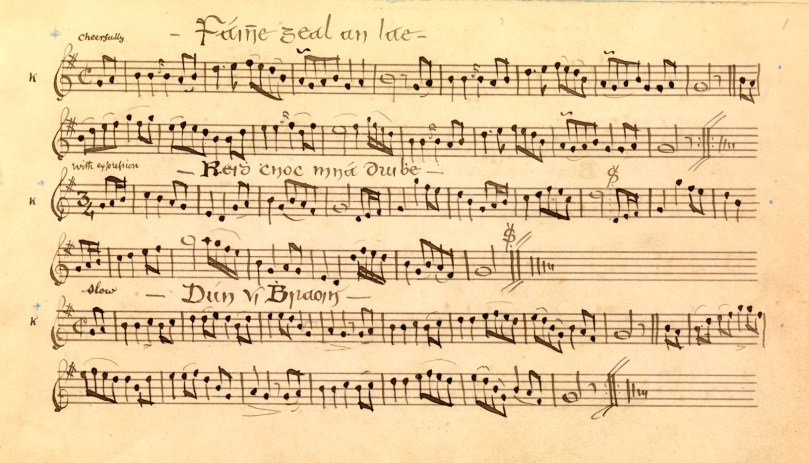 Cheerfully
– Fáiṅe geal an lae –
K
With expression
– Reiḋ ċnoc mná duiḃe –
K
Slow
– Dún Uí Bhraoin –
K